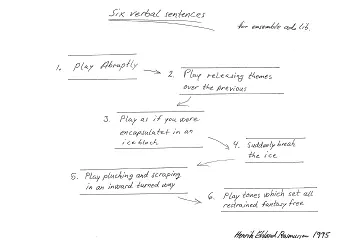 Six verbal sentences
for ensemble ad. lib.
1. Play Abruptly
2. Play releasing themes
over the previous
3. Play as if you were
encapsulatet in an
iceblock
4. Suddenly break
the ice
5. Play plucking and scraping
in an inward turned way
6. Play tones which set all
restrained fantasy free
Henrik Ehland Rasmussen 1995